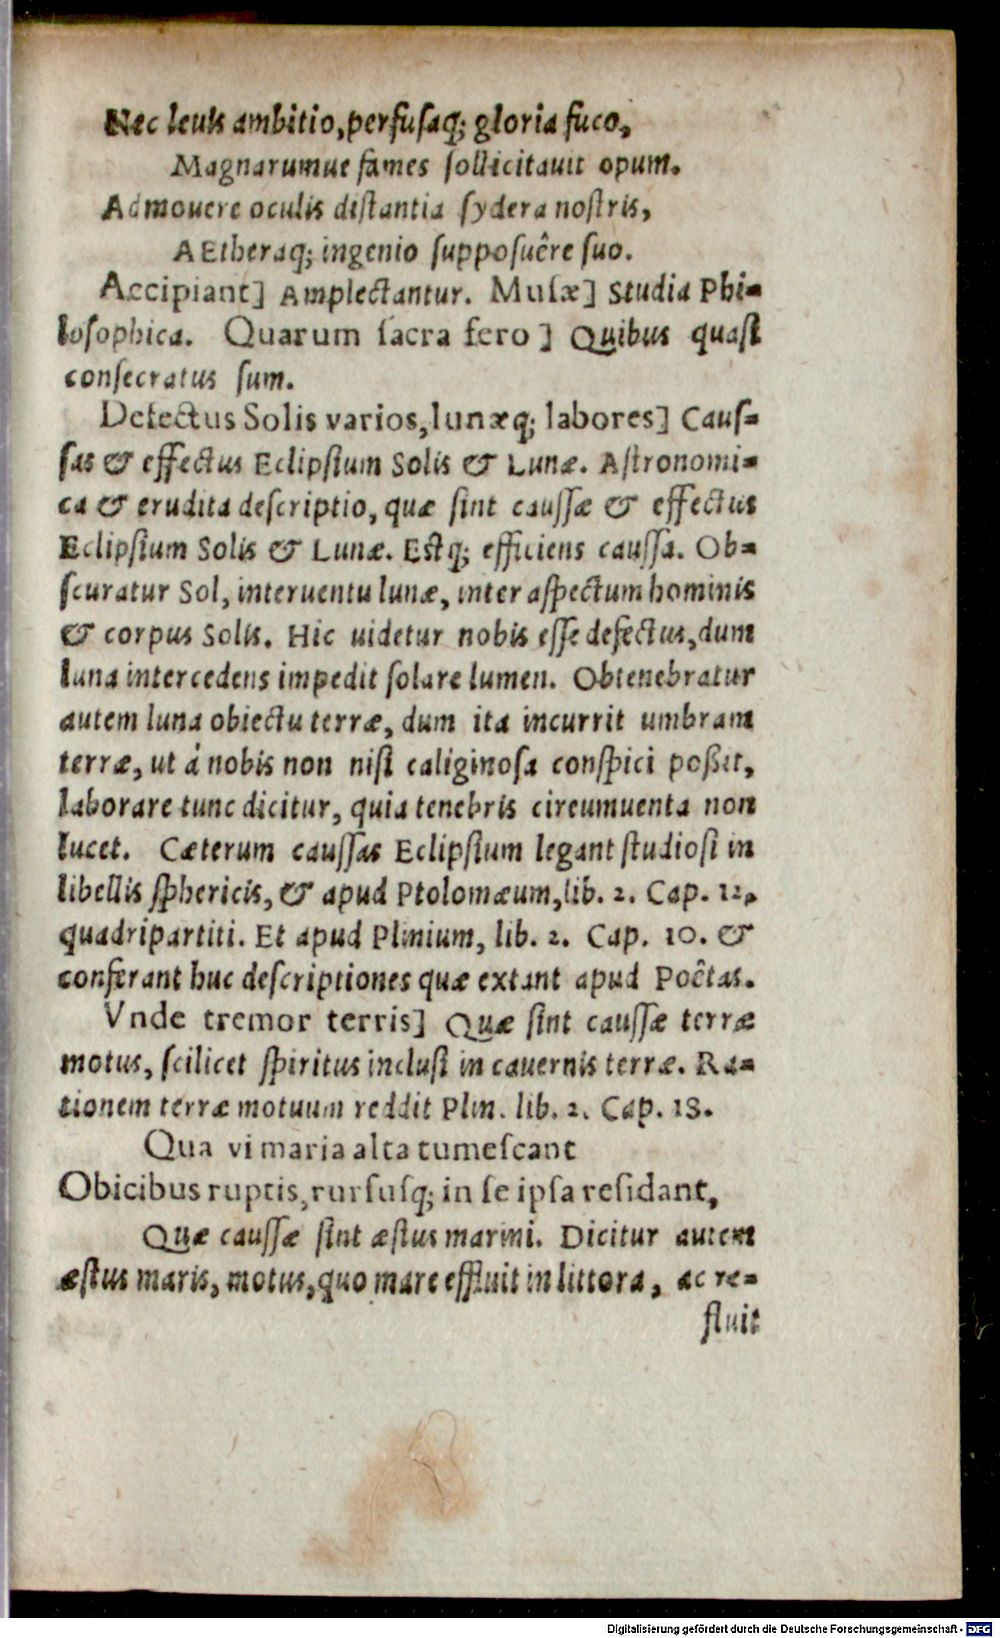 Nec leuis ambitio, perfusaq; gloria fuco,
Magnarumue fames sollicitauit opum.
Admouere oculis distantia sydera nostris,
AEtheraq; ingenio supposuêre suo.
Accipiant] Amplectantur. Musæ] Studia Phi-
losophica. Quarum sacra fero] Quibus quasi
consecratus sum.
Defectus Solis varios, lunæq; labores] Caus-
sas & effectus Eclipsium Solis & Lunæ. Astronomi-
ca & erudita descriptio, quæ sint caussæ & effectus
Eclipsium Solis & Lunæ. Estq; efficiens caussa. Ob-
scuratur Sol, interuentu lunæ, inter aspectum hominis
& corpus Solis. Hic uidetur nobis esse defectus, dum
luna intercedens impedit solare lumen. Obtenebratur
autem luna obiectu terræ, dum ita incurrit umbram
terræ, ut à nobis non nisi caliginosa conspici poßit,
laborare tunc dicitur, quia tenebris circumuenta non
lucet. Cæterum caussas Eclipsium legant studiosi in
libellis sphericis, & apud Ptolomæum, lib. 2. Cap. 12.
quadripartiti. Et apud Plinium, lib. 2. Cap. 10. &
conferant huc descriptiones quæ extant apud Poêtas.
Vnde tremor terris] Quæ sint caussæ terræ
motus, scilicet spiritus inclusi in cauernis terræ. Ra-
tionem terræ motuum reddit Plin. lib. 2. Cap. 18.
Qua vi maria alta tumescant
Obicibus ruptis, rursusq; in se ipsa residant,
Quæ caussæ sint æstus marini. Dicitur autem
æstus maris, motus, quo mare effluit in littora, ac re-
fluit
Digitalisierung gefördert durch die Deutsche Forschungsgemeinschaft - DFG